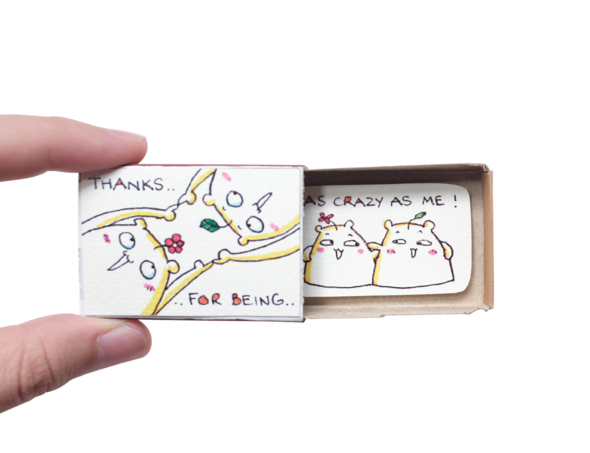 THANKS..
..FOR BEING..
AS CRAZY AS ME !